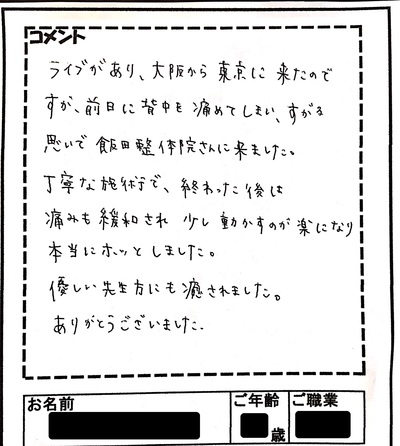 コメント
ライブがあり、大阪から東京に来たので
すが、前日に背中を痛めてしまい、すがる
思いで飯田整体院さんに来ました。
丁寧な施術で、終わった後は
痛みも緩和され少し動かすのが楽になり
本当にホッとしました。
優しい先生方にも癒されました。
ありがとうございました.
お名前
ご年齢
歳
ご職業